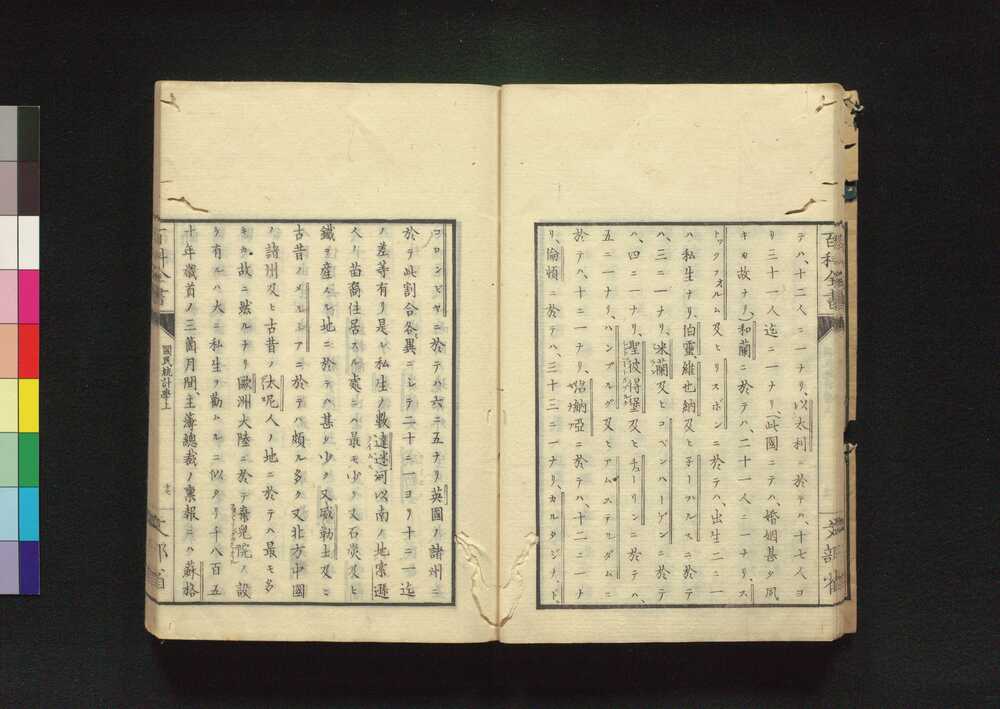 テハ、十二人ニ一ナリ、以太利ニ於テハ、十七人ヨ
リ三十一人迄ニ一ナリ、此國ニテハ、婚姻甚タ夙
キカ故ナリ、和蘭ニ於テハ、二十一人ニ一ナリ、ス
トックフォルム又ヒリスボンニ於テハ、出生二ニ一
ハ私生ナリ、伯靈、維也納及ヒ ニ於テ
ハ、三ニ一ナリ、米蘭及ヒコペンハーゲンニ於テ
ハ、四ニ一ナリ、聖彼得堡及ヒチューリンニ於テハ、
五ニ一ナリ、ハンブルグ及ヒアムステルダムニ
於テハ、十二ニ一ナリ、焔納亞ニ於テハ、十二ニ一ナ
リ、倫頓ニ於テハ、三十三ニ一ナリ、カルタジナト、
百科全書
文部省
コロンビヤニ於テハ六ニ五ナリ英國ノ諸州ニ
於テ此割合各異ニシテ二十ニ一ヨリ十ニ一迄
ノ差等有リ是レ私生ノ數達迷河以南ノ地索遜
人ノ苗裔住居スル處ニハ最モ少ク又石炭及ヒ
鐵ヲ産スル地ニ於テハ甚タ少ク又威勒士及ヒ
古昔ノメルシアニ於テハ頗ル多ク又北方中國
ノ諸州及ヒ古昔ノ太尼人ノ地ニ於テハ最モ多
キカ故ニ然ルナリ歐洲大陸ニ於テ棄兒院ノ設
ケ有ルハ大ニ私生ヲ勸ムルニ似タリ千八百五
十年歳首ノ三箇月間、主簿總裁ノ稟報ニハ蘇格
百科全書
國民統計學上
文部省